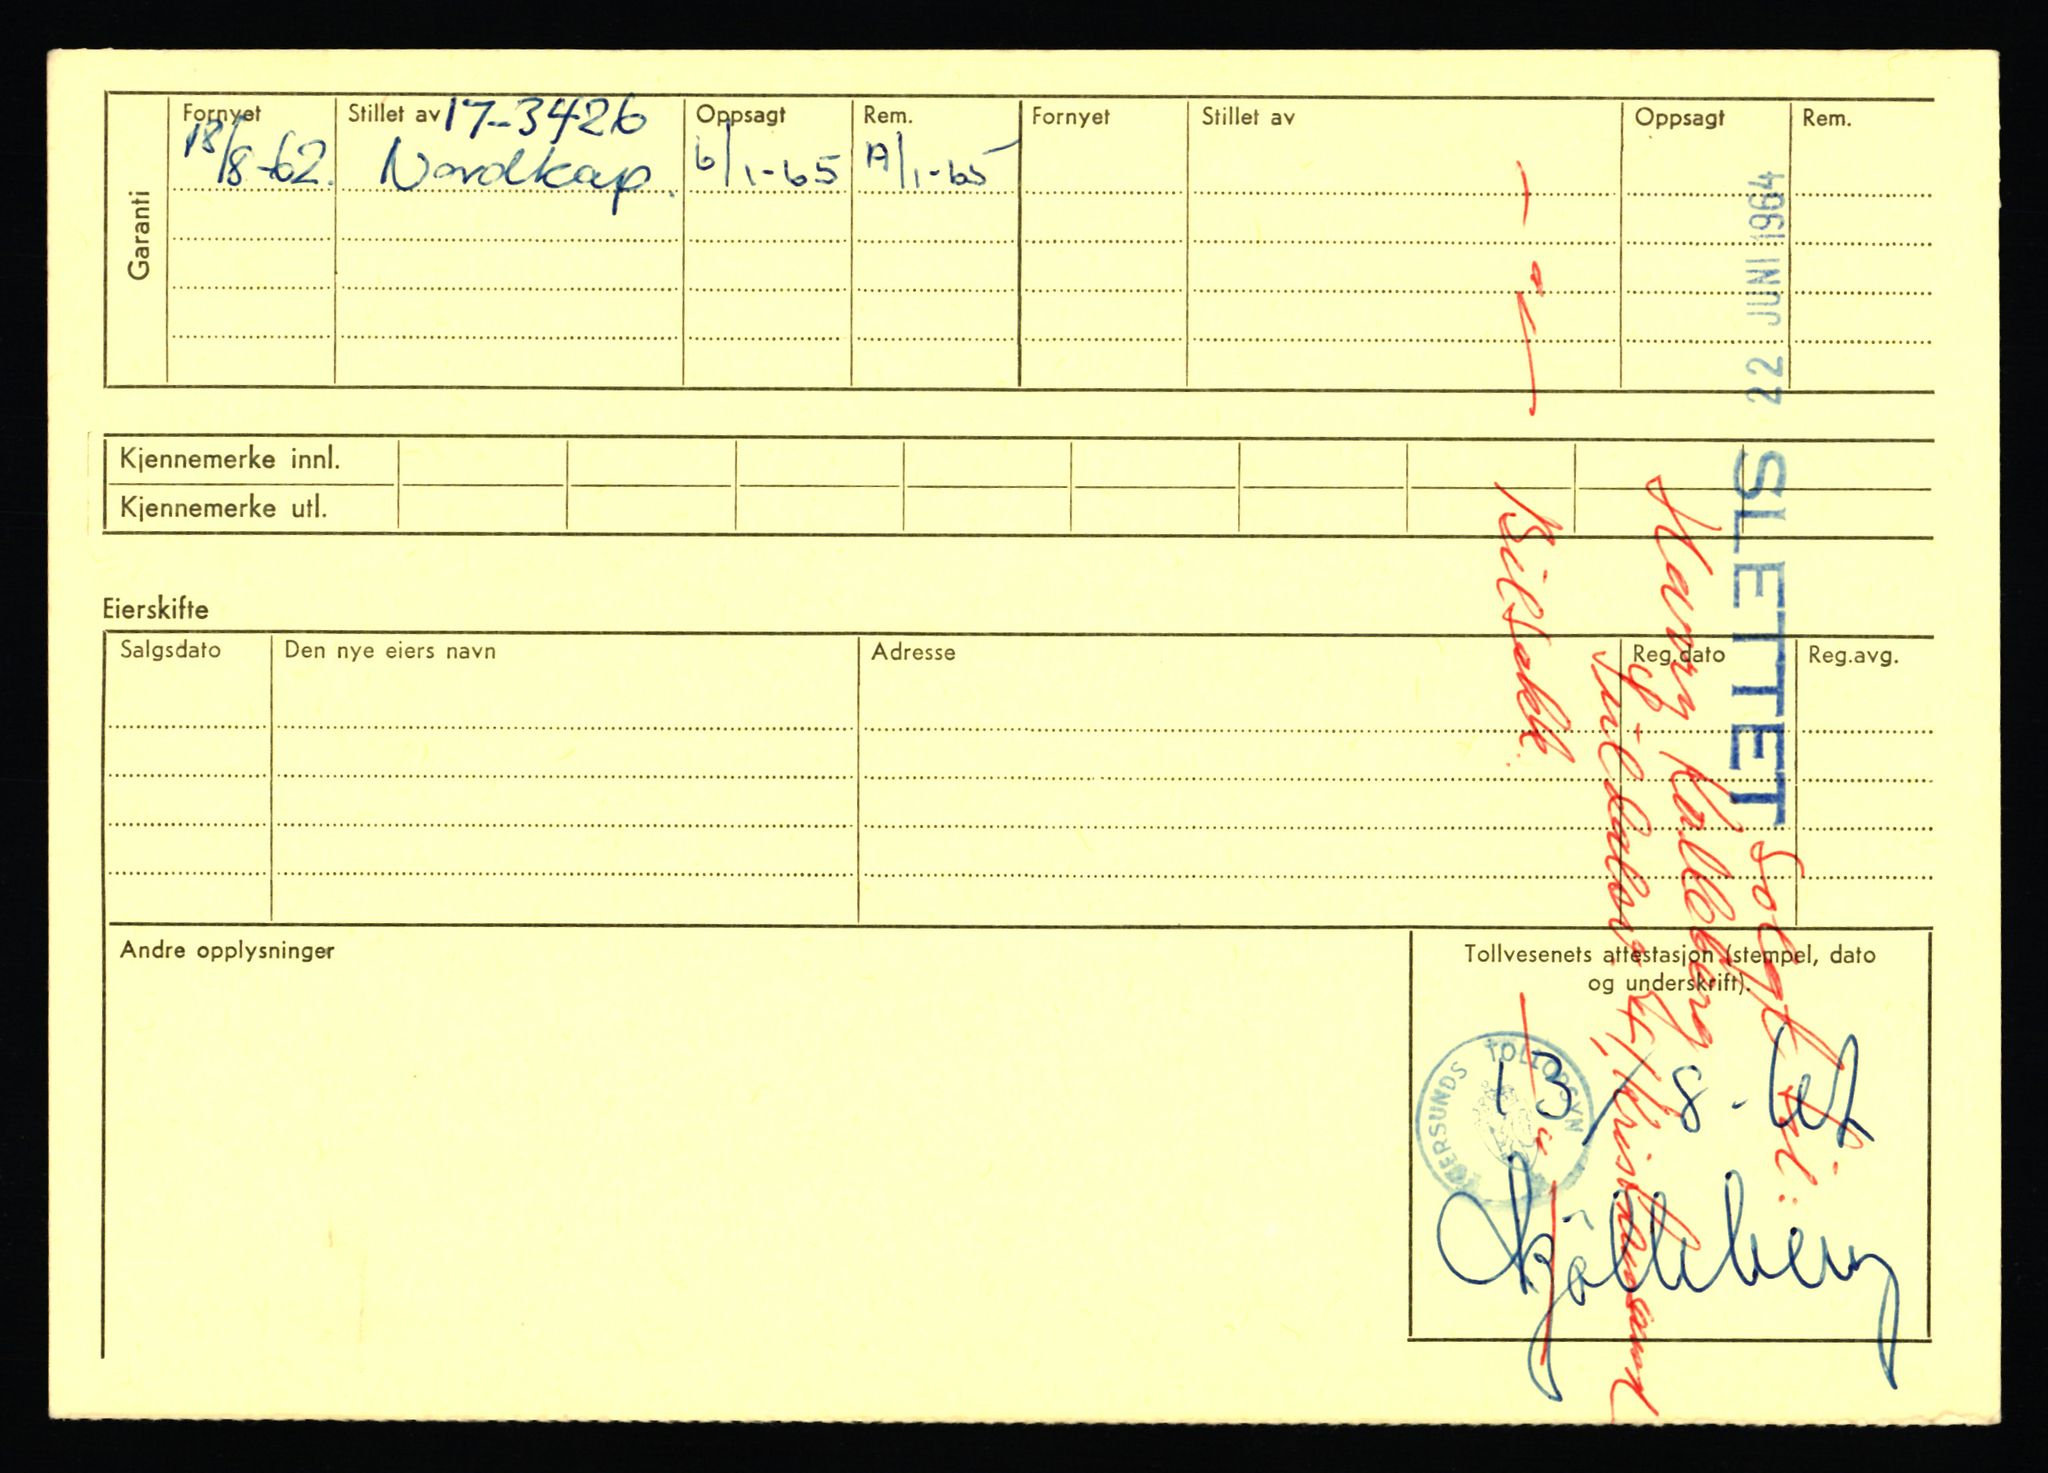 Garanti
Fornyet Stillet av 17-3426 Oppsagt Rem. Fornyet Stillet av Oppsagt Rem.
18/8-62. Nordkap. 6/1-65 A/1-65
Kjennemerke innl.
Kjennemerke utl.
Eierskifte
Salgsdato Den nye eiers navn Adresse Reg.dato Reg.avg.
Andre opplysninger
Tollvesenets attestasjon (stempel, dato
og underskrift).
TOLLOPSYN
13/8-62
SLETTET 22 JUNI 1964
Solgt til:
Harry Kalleberg
Kristiansand
Bilsakk.